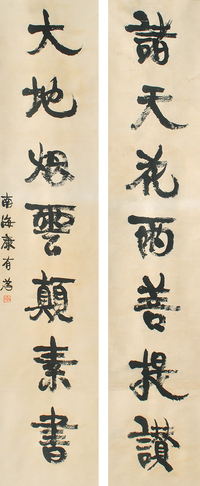 諸天花雨善提讚
大地烟雲顛素書
南海康有為